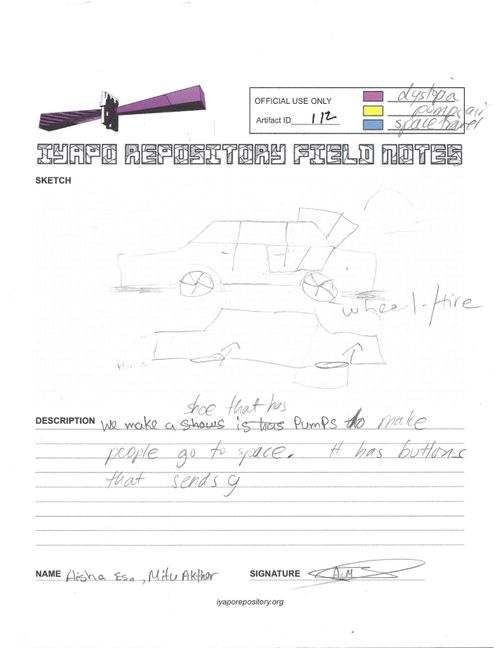 OFFICIAL USE ONLY
Artifact ID 112
dystopia
space travel
IYAPO REPOSITORY FIELD NOTES
SKETCH
wheel-tire
shoe that has
DESCRIPTION We make a shows is has PumPs to make
people go to space. It has buttons
that sends g
NAME Aisha Esa, Mitu Akther
SIGNATURE A.M
iyaporepository.org